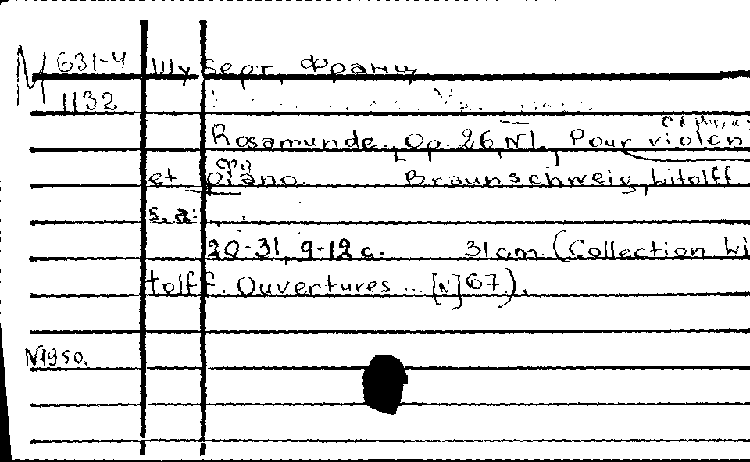 М 631-4 Шуберт, Франц
1132
Rosamunde. Op. 26, N1. Pour violon
et piano. Braunschweig, Litolff
s.a.
20-31, 9-12 c. 31 cm (Collection Li
tolff. Ouvertures... [N] 67).
N1950.